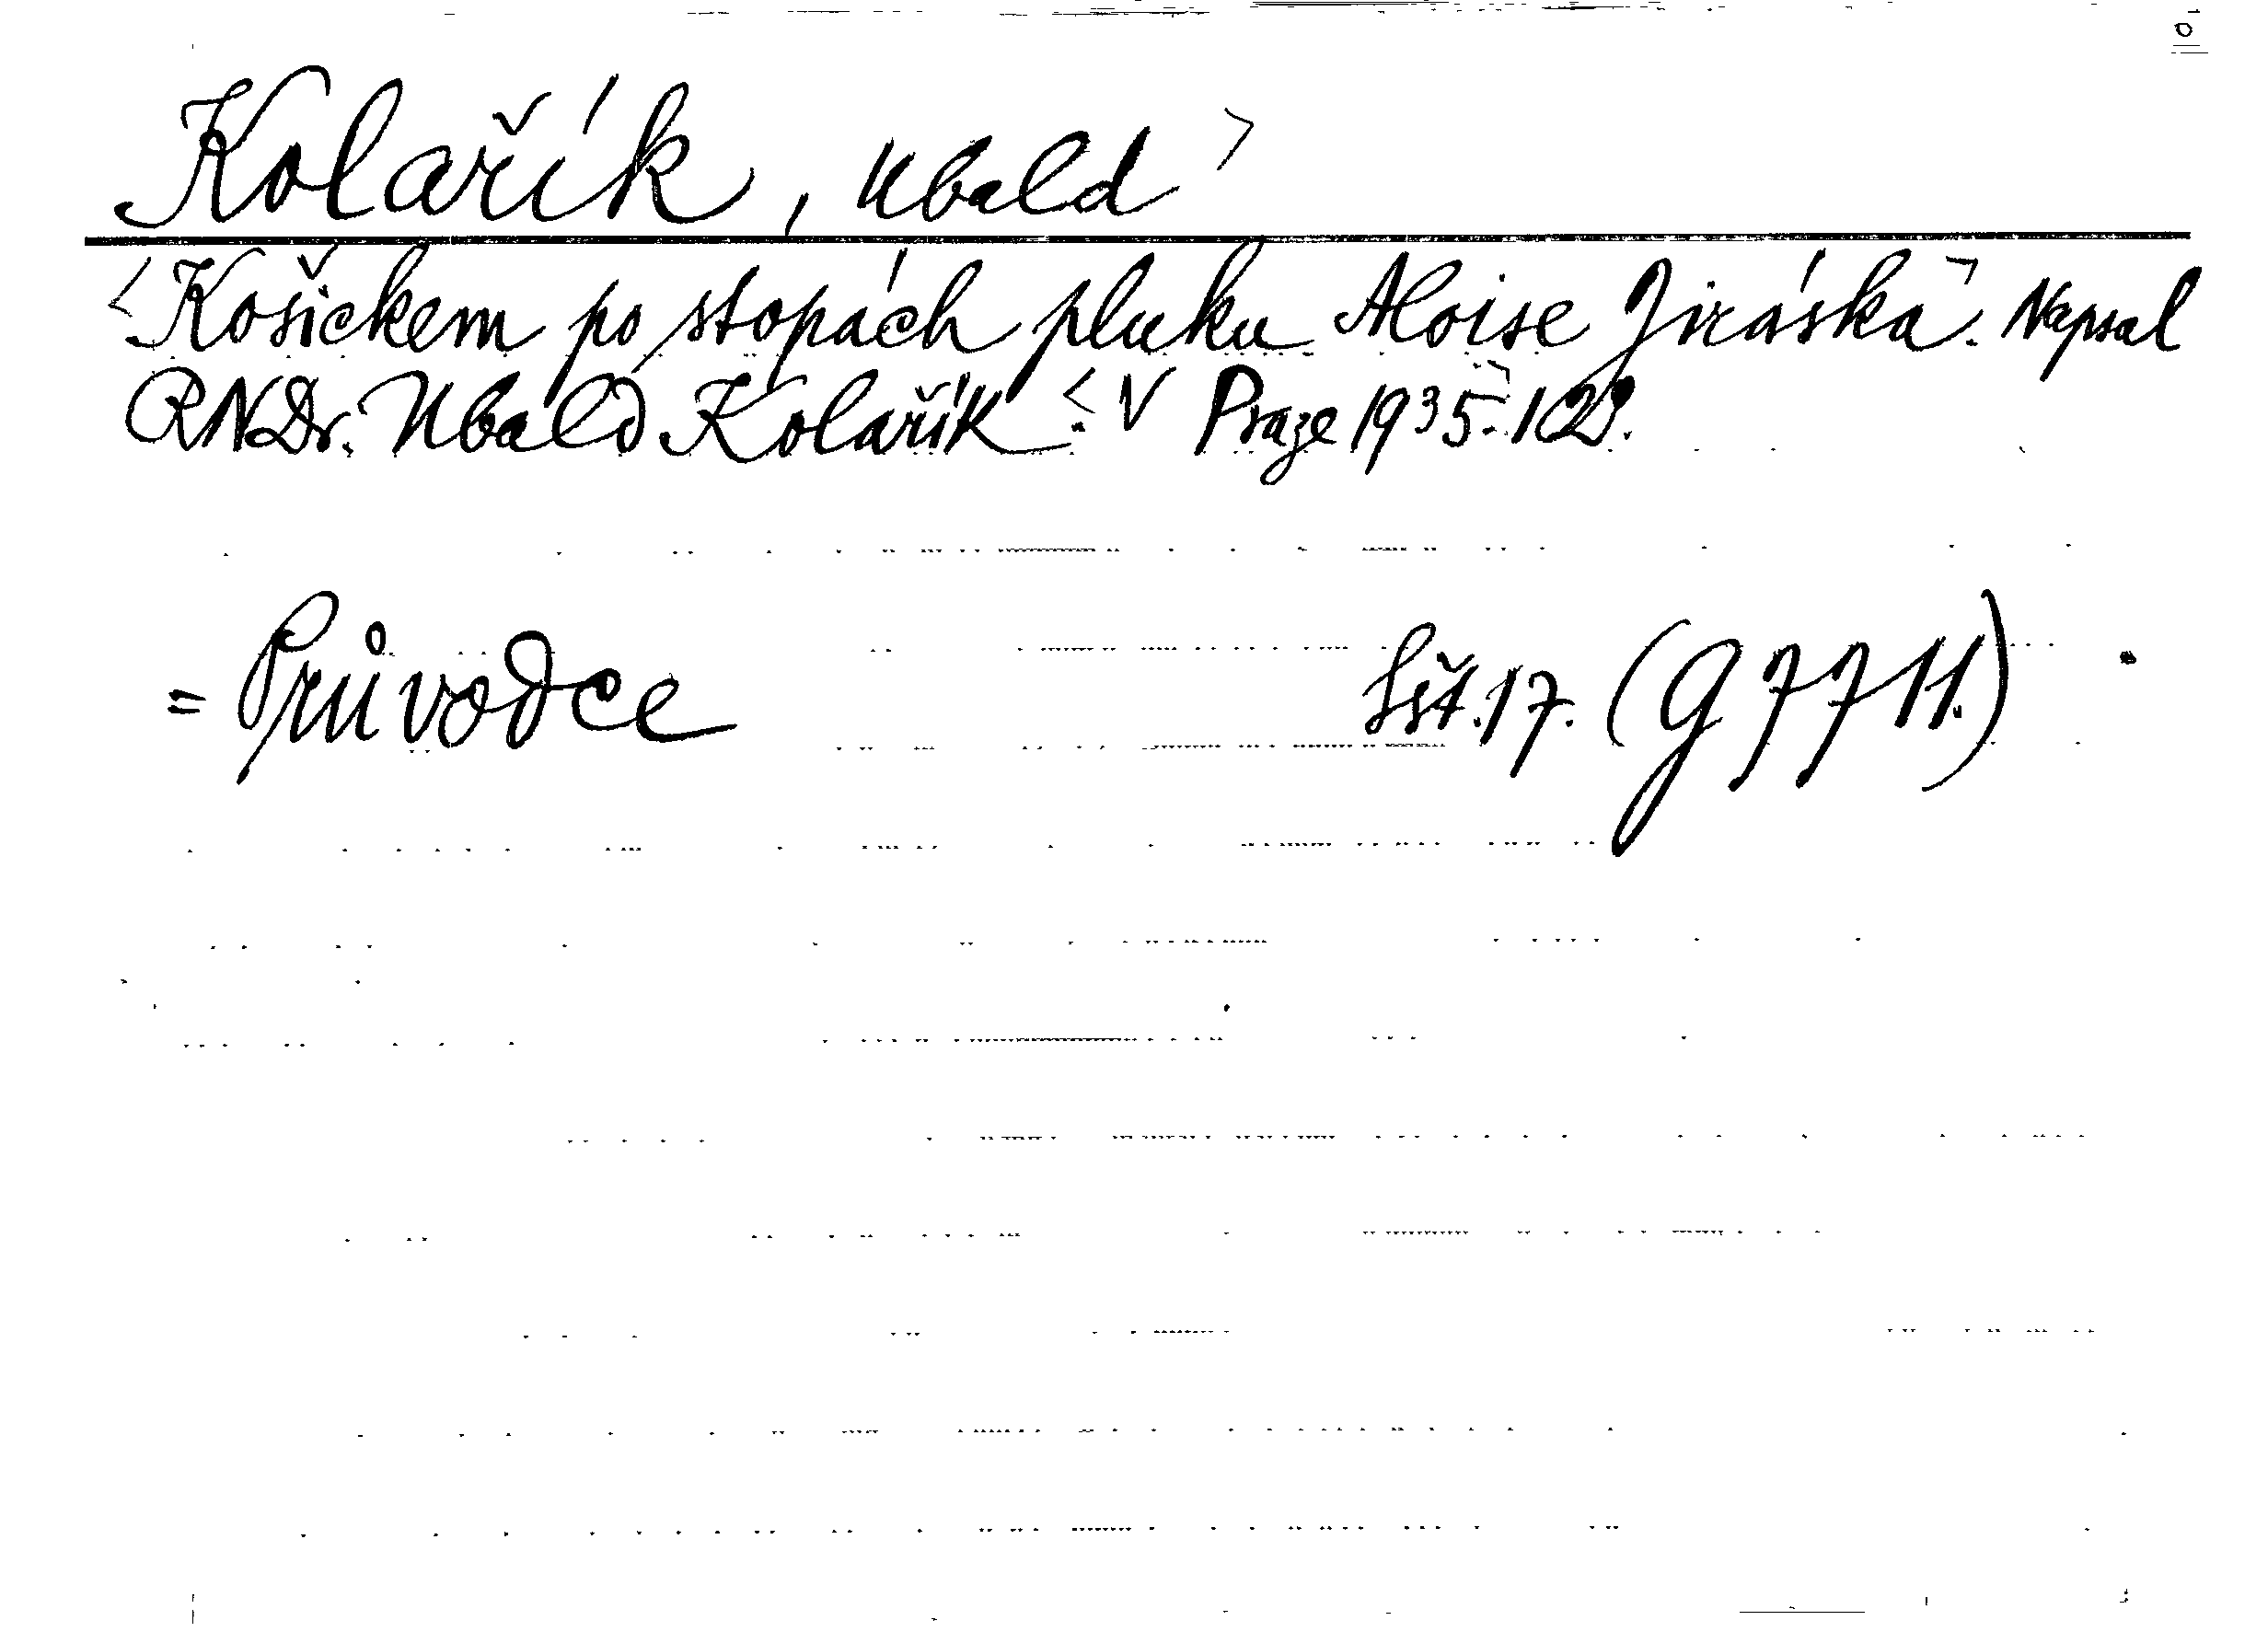 Kolařík, Ubald >
<Košickem po stopách pluku Aloise Jiráska>. Napsal
RNDr. Ubald Kolařík. <V Praze 1935>.
= Průvodce Sšt.17. (G 7711.)